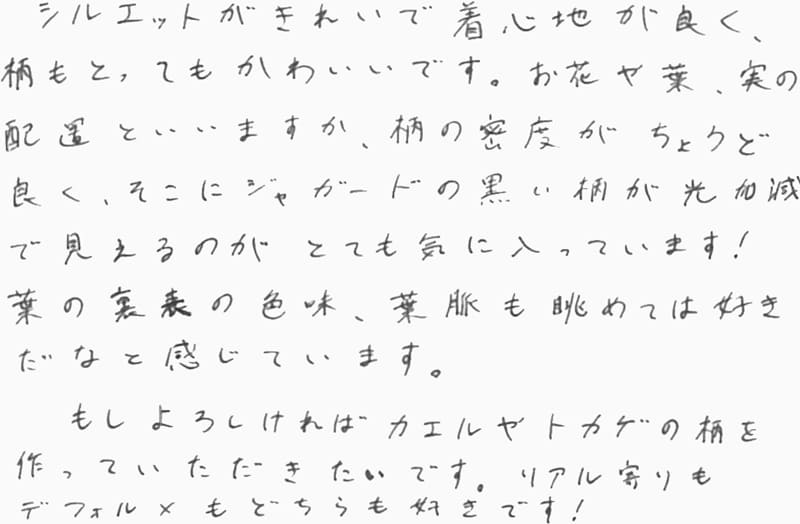 シルエットがきれいで着心地が良く、
柄もとってもかわいいです。お花や葉、実の
配置といいますか、柄の密度がちょうど
良く、そこにジャガードの黒い柄が光加減
で見えるのがとても気に入っています!
葉の裏表の色味、葉脈も眺めては好き
だなと感じています。
もしよろしければカエルやトカゲの柄を
作っていただきたいです。リアル寄りも
デフォルメもどちらも好きです!